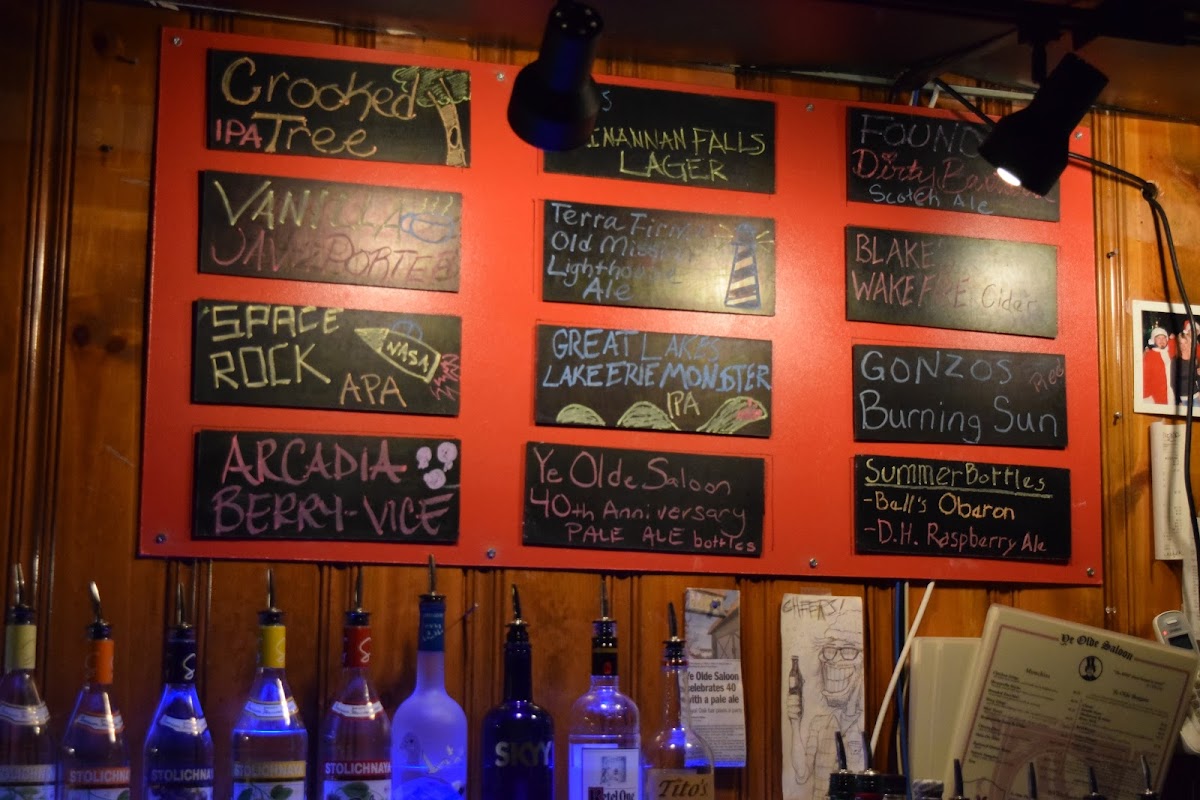 Crooked
IPA Tree
VANILLA
JAVA PORTER
SPACE
ROCK
NASA
APA
ARCADIA
BERRY-VICE
INANNAN FALLS
LAGER
Terra Firma
Old Mission
Lighthouse
Ale
GREAT LAKES
LAKE ERIE MONSTER
IPA
Ye Olde Saloon
40th Anniversary
PALE ALE bottles
FOUND
Dirty
Scotch Ale
BLAKE'S
WAKE FIRE Cider
GONZOS
Burning Sun
Summer Bottles
-Bell's Oberon
-D.H. Raspberry Ale
STOLICHNAYA
STOLICHNAYA
STOLICHNAYA
STOLICHNAYA
SKYY
Ketel One
Tito's
Ye Olde Saloon
celebrates 40
with a pale ale
CHEERS!
Ye Olde Saloon
Munchies